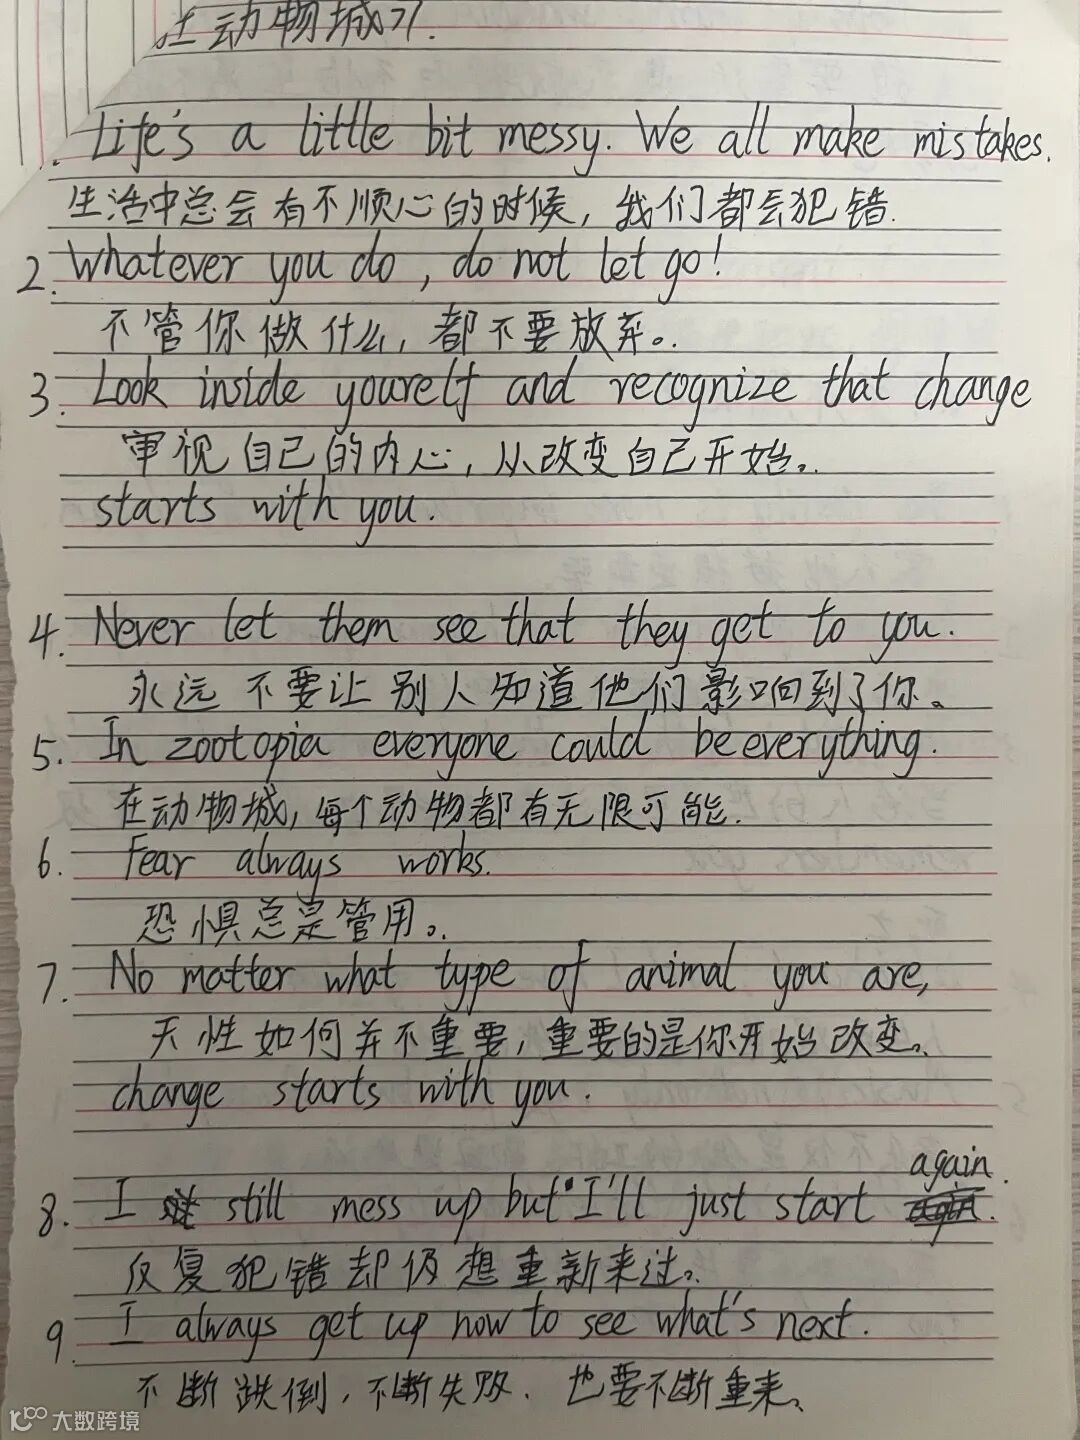 动物城》.
Life's a little bit messy. We all make mistakes.
生活中总会有不顺心的时候，我们都会犯错.
2. Whatever you do, do not let go!
不管你做什么，都不要放弃。
3. Look inside yourelf and recognize that change
审视自己的内心，从改变自己开始。
starts with you.
4. Never let them see that they get to you.
永远不要让别人知道他们影响到了你。
5. In zootopia everyone could be everything.
在动物城，每个动物都有无限可能.
6. Fear always works.
恐惧总是管用。
7. No matter what type of animal you are,
天性如何并不重要，重要的是你开始改变。
change starts with you.
again.
8. I still mess up but I'll just start
反复犯错却仍想重新来过。
9. I always get up now to see what's next.
不断跌倒，不断失败．也要不断重来。
大数跨境